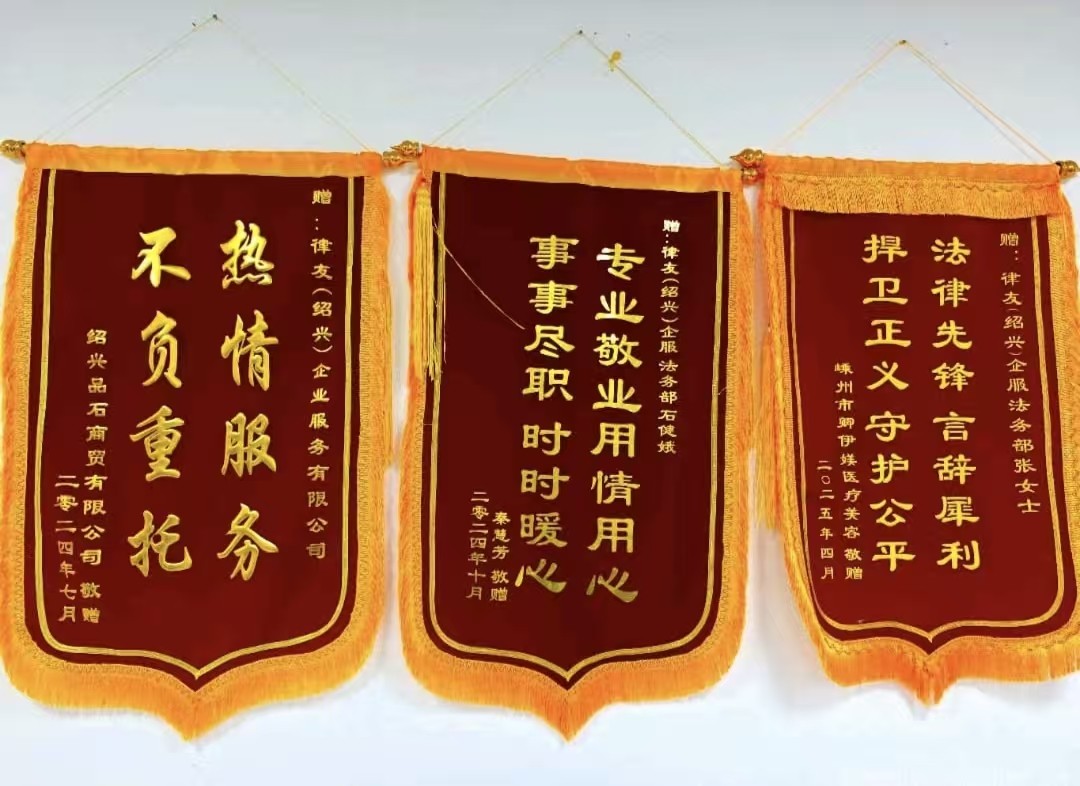 赠：律友（绍兴）企业服务有限公司
热情服务
不负重托
绍兴品石商贸有限公司 敬赠
二零二四年七月
赠：律友（绍兴）企服法务部石健娥
专业敬业用情用心
事事尽职 时时暖心
秦慧芳 敬赠
二零二四年十月
赠：律友（绍兴）企服法务部张女士
法律先锋 言辞犀利
捍卫正义 守护公平
嵊州市卿伊媄医疗美容 敬赠
二〇二五年四月